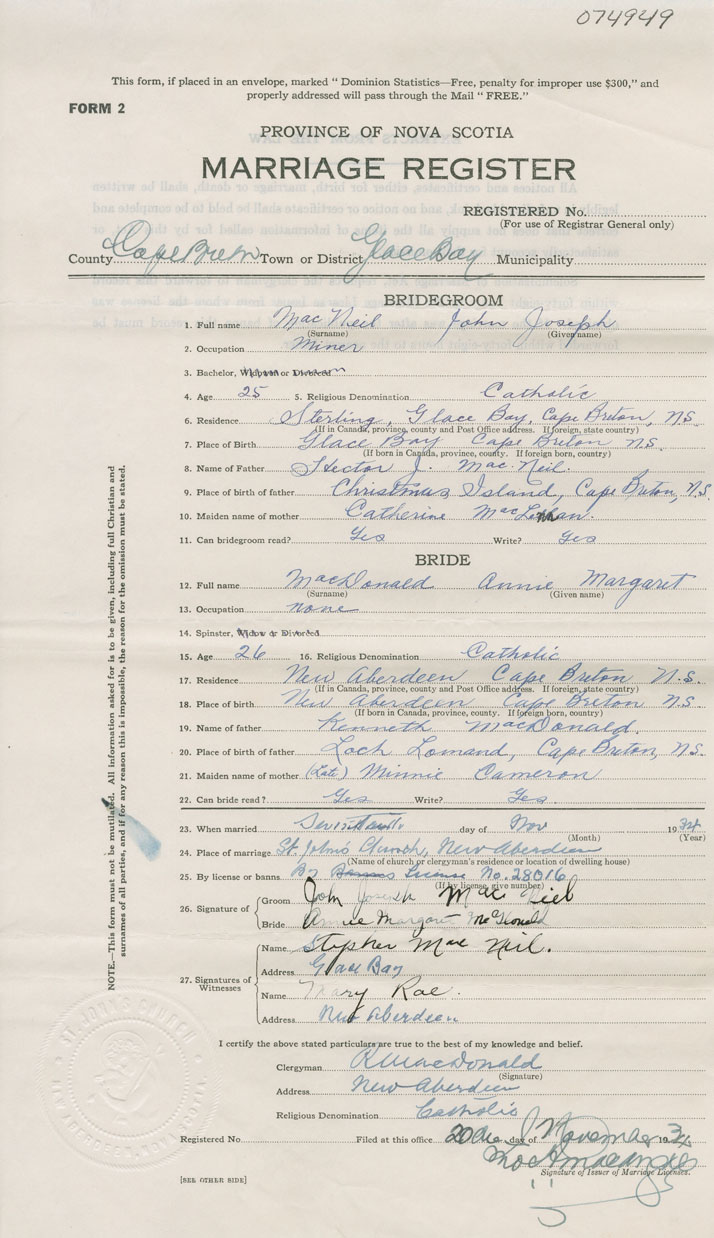 074949
This form, if placed in an envelope, marked “ Dominion Statistics—Free, penalty for improper use $300,” and
properly addressed will pass through the Mail “ FREE.”
FORM 2
PROVINCE OF NOVA SCOTIA
MARRIAGE REGISTER
REGISTERED No.
(For use of Registrar General only)
County Cape Breton Town or District Glace Bay Municipality
BRIDEGROOM
1. Full name Mac Neil John Joseph
(Surname) (Given name)
2. Occupation Miner
3. Bachelor, Widower or Divorced
4. Age 25 5. Religious Denomination Catholic
6. Residence Sterling, Glace Bay, Cape Breton, N.S.
(If in Canada, province, county and Post Office address. If foreign, state country)
7. Place of Birth Glace Bay Cape Breton N.S.
(If born in Canada, province, county. If foreign born, country)
8. Name of Father Hector J. Mac Neil.
9. Place of birth of father Christmas Island, Cape Breton, N.S.
10. Maiden name of mother Catherine
11. Can bridegroom read? Yes Write? Yes
BRIDE
12. Full name MacDonald Annie Margaret
(Surname) (Given name)
13. Occupation none
14. Spinster, Widow or Divorced
15. Age 26 16. Religious Denomination Catholic
17. Residence New Aberdeen Cape Breton N.S.
(If in Canada, province, county and Post Office address. If foreign, state country)
18. Place of birth New Aberdeen Cape Breton N.S
(If born in Canada, province, county. If foreign born, country)
19. Name of father Kenneth MacDonald.
20. Place of birth of father Loch Lomand, Cape Breton, N.S.
21. Maiden name of mother (Late) Minnie Cameron
22. Can bride read? Yes Write? Yes.
23. When married day of Nov 1934
(Month) (Year)
24. Place of marriage St. John's Church, New Aberdeen
(Name of church or clergyman's residence or location of dwelling house)
25. By license or banns By Banns License No. 28016
(If by license, give number)
26. Signature of Groom John Joseph Mac Neil
Bride Annie Margaret McDonald
27. Signatures of Witnesses
Name Stephen Mac Neil.
Address Glace Bay
Name Mary Rae.
Address New Aberdeen
I certify the above stated particulars are true to the best of my knowledge and belief.
Clergyman MacDonald
(Signature)
Address New Aberdeen
Religious Denomination Catholic
Registered No. Filed at this office 20 day of November 1934
Signature of Issuer of Marriage Licenses.
[SEE OTHER SIDE]
NOTE.—This form must not be mutilated. All information asked for is to be given, including full Christian and
surnames of all parties, and if for any reason this is impossible, the reason for the omission must be stated.